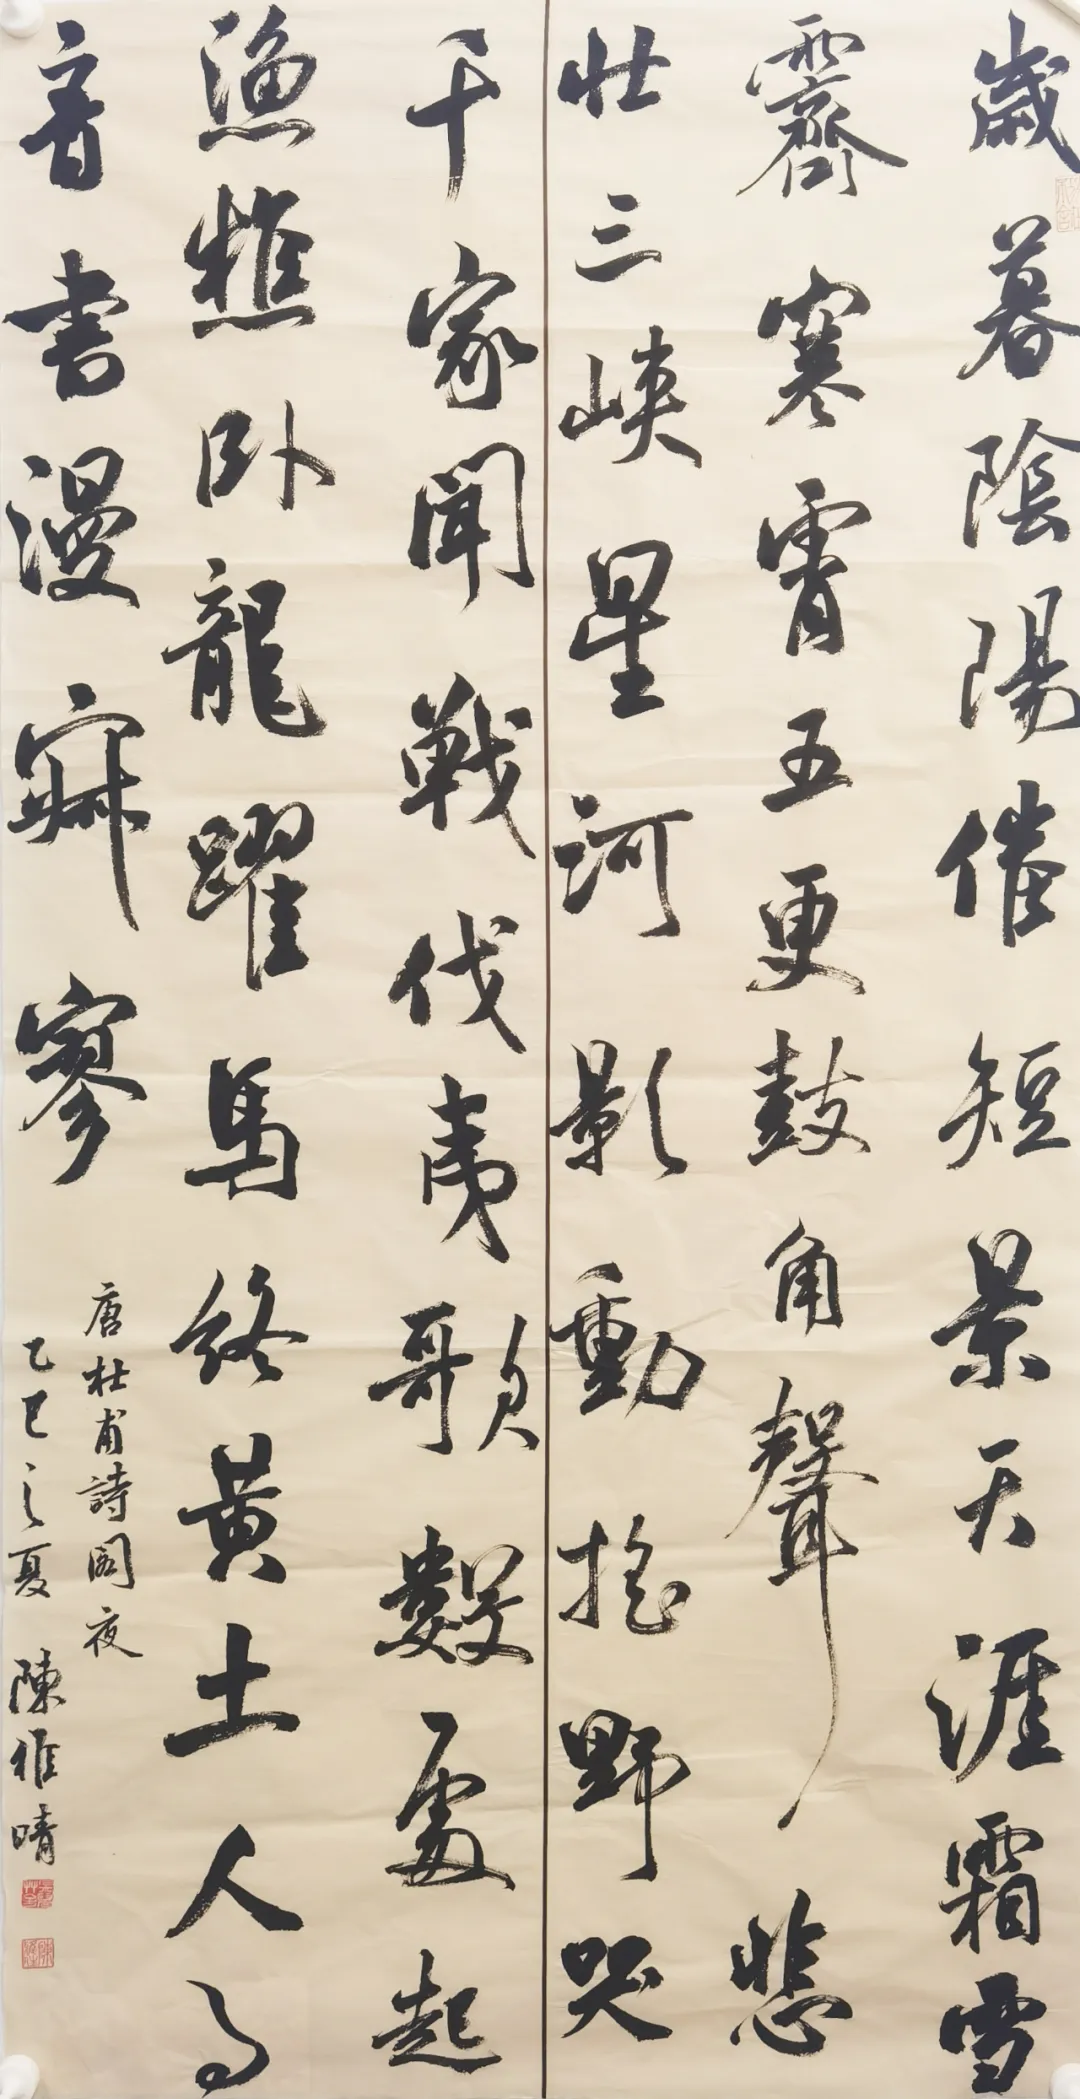 歲暮陰陽催短景天涯霜雪
霽寒霄五更鼓角聲悲
壯三峽星河影動搖野哭
千家聞戰伐夷歌數處起
漁樵臥龍躍馬終黃土人事
音書漫寂寥
唐杜甫詩閣夜
乙巳之夏 陳雅晴